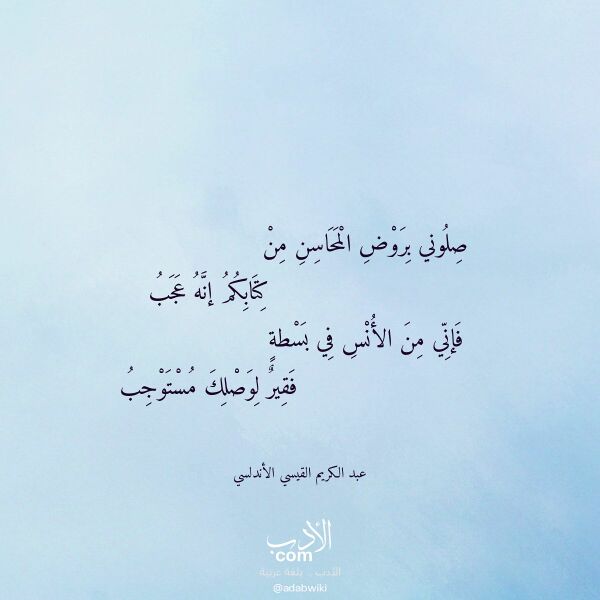 صِلُوني بِرَوْضِ الْمَحَاسِنِ مِنْ
كِتَابِكُمُ إنَّهُ عَجَبُ
فَإنِّي مِنَ الأُنْسِ فِي بَسْطةٍ
فَقِيرٌ لِوَصْلِكَ مُسْتَوْجِبُ
عبد الكريم القيسي الأندلسي
الأدب
com
الأدب .. بلغة عربية
@adabwiki